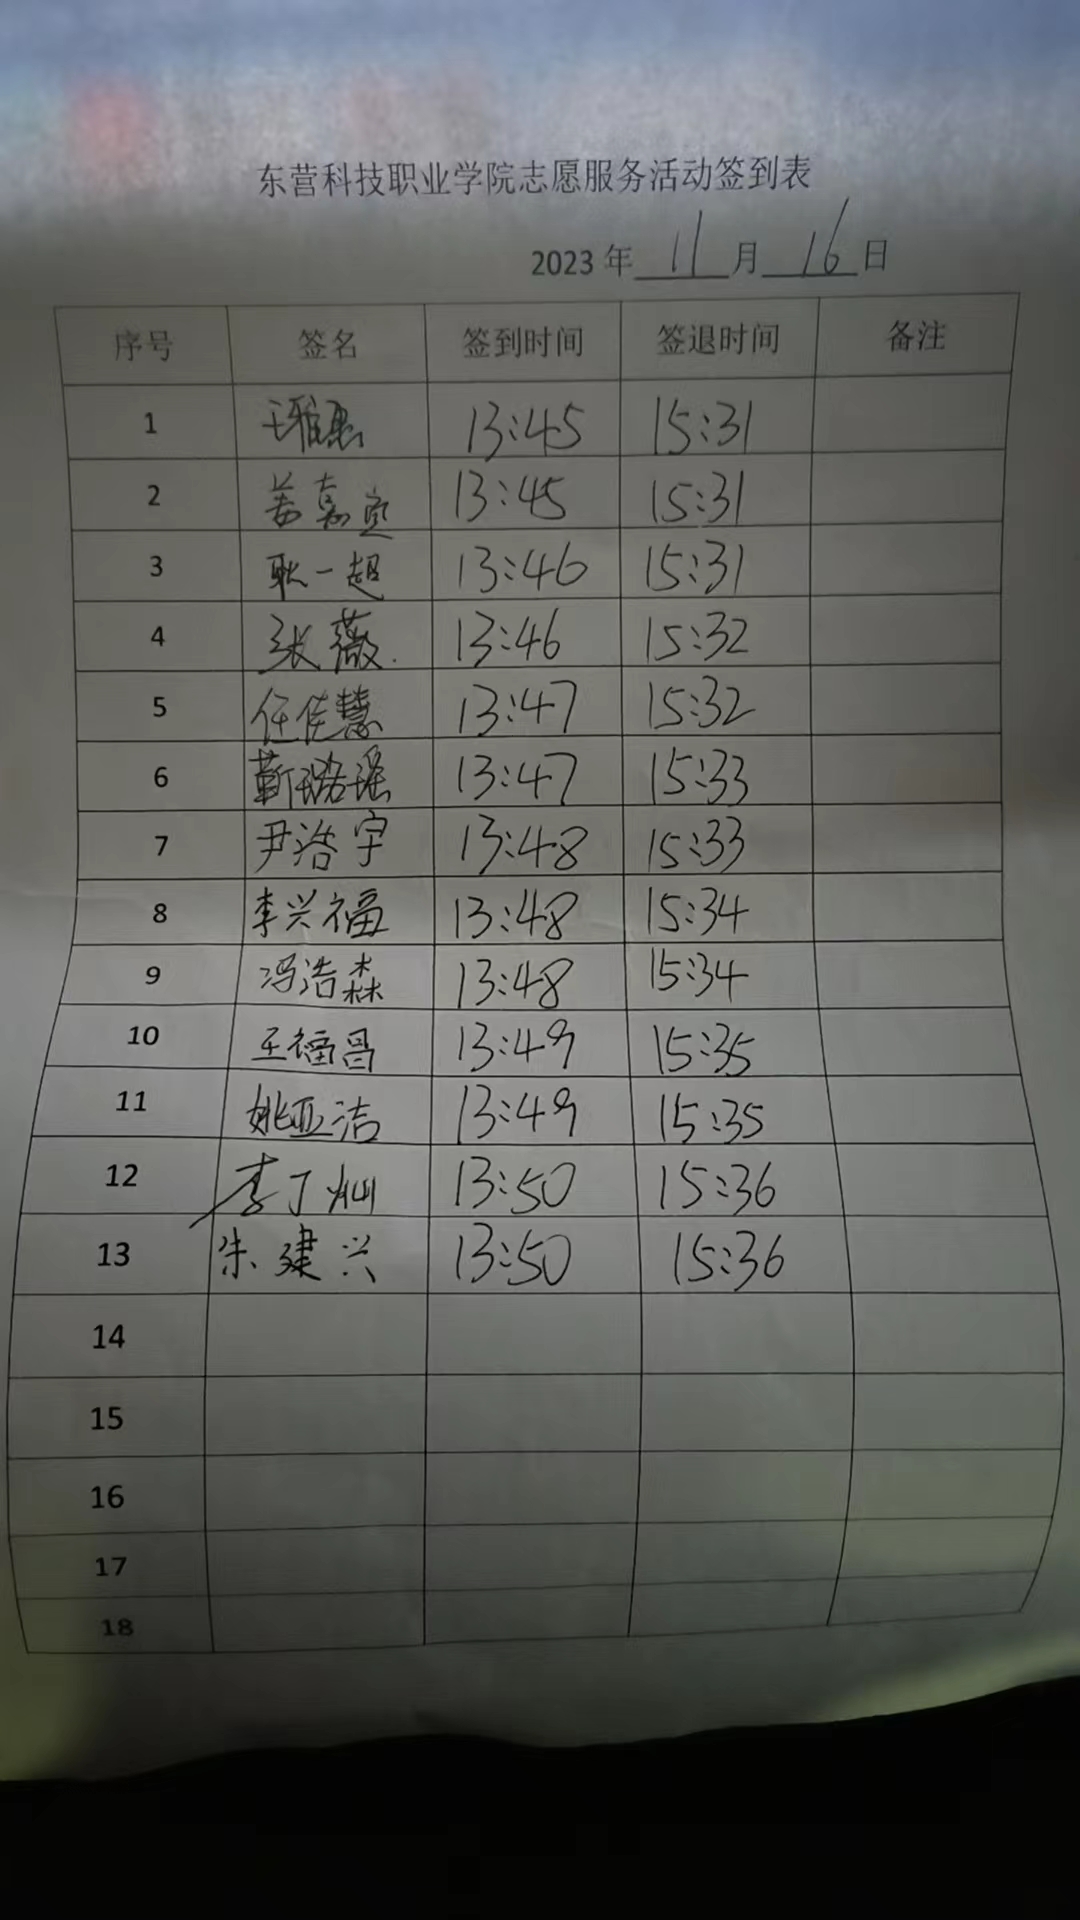 东营科技职业学院志愿服务活动签到表
2023 年 11 月 16 日
序号 签名 签到时间 签退时间 备注
1 王雅惠 13:45 15:31
2 姜嘉宜 13:45 15:31
3 耿一超 13:46 15:31
4 张薇 13:46 15:32
5 任佳慧 13:47 15:32
6 靳璐瑶 13:47 15:33
7 尹浩宇 13:48 15:33
8 李兴福 13:48 15:34
9 冯浩森 13:48 15:34
10 王福昌 13:49 15:35
11 姚亚洁 13:49 15:35
12 李丁灿 13:50 15:36
13 朱建兴 13:50 15:36
14
15
16
17
18